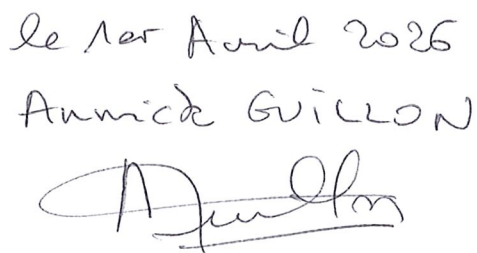 le 1er Avril 2026
Annick GUILLON